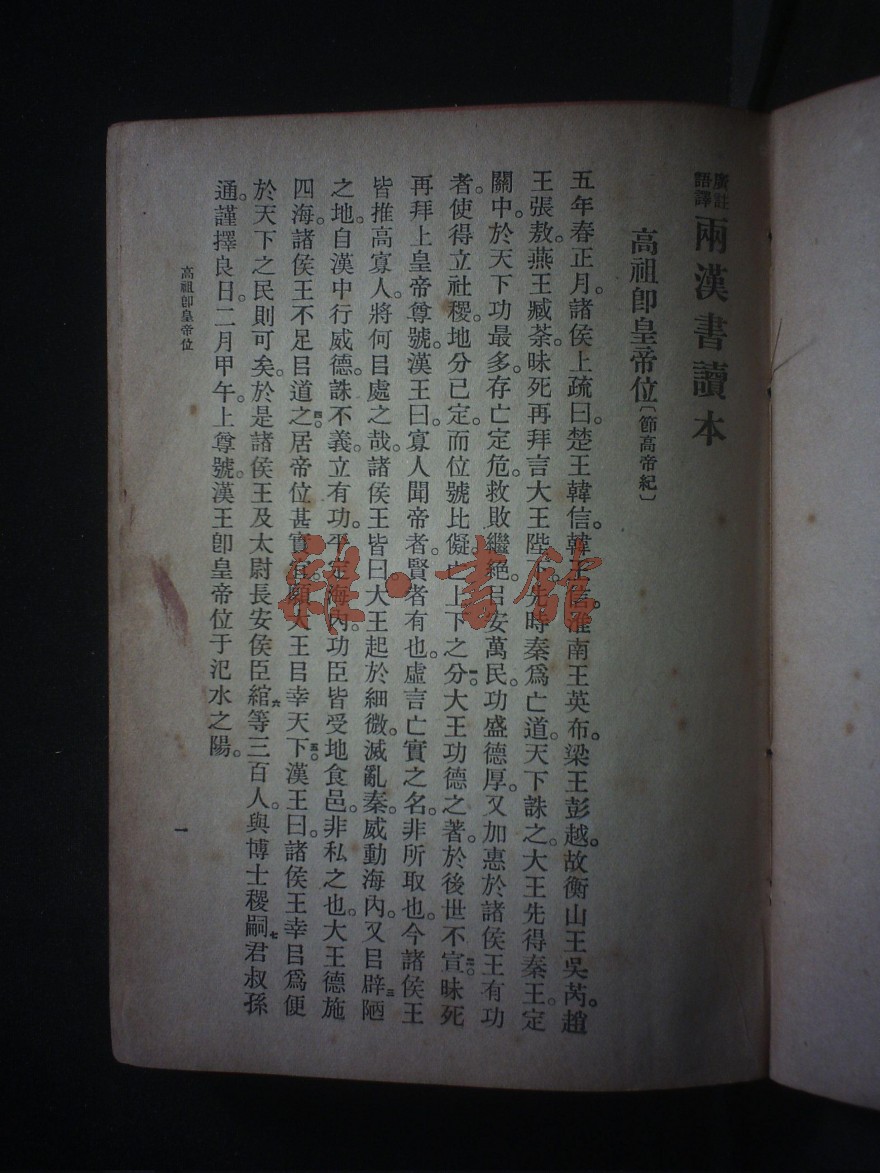 廣註
語譯
兩漢書讀本
高祖卽皇帝位〔節高帝紀〕
五年春正月。諸侯上疏曰。楚王韓信。韓王信。淮南王英布。梁王彭越。故衡山王吳芮。趙
王張敖。燕王臧荼。昧死再拜言大王陛下。先時秦爲亡道。天下誅之。大王先得秦王。定
關中。於天下功最多。存亡定危。救敗繼絕。㠯安萬民。功盛德厚。又加惠於諸侯王有功
者。使得立社稷。地分已定。而位號比儗。亡上下之分。一大王功德之著。於後世不宣。二昧死
再拜上皇帝尊號。漢王曰。寡人聞帝者。賢者有也。虛言亡實之名。非所取也。今諸侯王
皆推高寡人。將何㠯處之哉。諸侯王皆曰。大王起於細微。滅亂秦。威動海內。又㠯辟陋三
之地。自漢中行威德。誅不義。立有功。平定海內。功臣皆受地食邑。非私之也。大王德施
四海。諸侯王不足㠯道之。四居帝位甚實宜。願大王㠯幸天下。五漢王曰。諸侯王幸㠯爲便
於天下之民則可矣。於是諸侯王及太尉長安侯臣綰六等三百人。與博士稷嗣七君叔孫
通。謹擇良日。二月甲午。上尊號。漢王卽皇帝位于汜水之陽。
高祖卽皇帝位
一
雜·書館